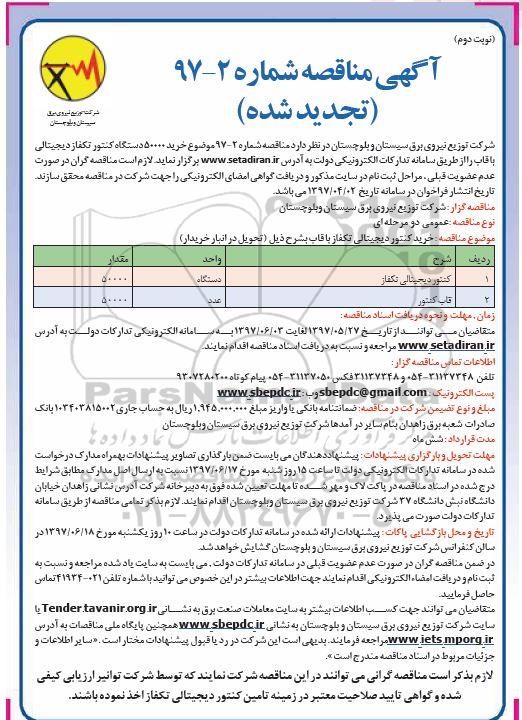 (نوبت دوم)
آگهی مناقصه شماره ۲-۹۷
(تجدید شده)
شرکت توزیع نیروی برق
سیستان و بلوچستان
شرکت توزیع نیروی برق سیستان و بلوچستان در نظر دارد مناقصه شماره ۲-۹۷ موضوع خرید ۵۰۰۰۰ دستگاه کنتور تکفاز دیجیتالی
با قاب را از طریق سامانه تدارکات الکترونیکی دولت به آدرس www.setadiran.ir برگزار نماید. لازم است مناقصه گران در صورت
عدم عضویت قبلی ، مراحل ثبت نام در سایت مذکور و دریافت گواهی امضای الکترونیکی را جهت شرکت در مناقصه محقق سازند.
تاریخ انتشار فراخوان در سامانه تاریخ ۱۳۹۷/۰۴/۰۲ می باشد.
مناقصه گزار : شرکت توزیع نیروی برق سیستان وبلوچستان
نوع مناقصه : عمومی دو مرحله ای
موضوع مناقصه : خرید کنتور دیجیتالی تکفاز با قاب بشرح ذیل (تحویل در انبار خریدار)
ردیف شرح واحد مقدار
۱ کنتور دیجیتالی تکفاز دستگاه ۵۰۰۰۰
۲ قاب کنتور عدد ۵۰۰۰۰
زمان ، مهلت و نحوه دریافت اسناد مناقصه:
متقاضیان می توانند از تاریخ ۱۳۹۷/۰۵/۲۷ لغایت ۱۳۹۷/۰۶/۰۳ به سامانه الکترونیکی تدارکات دولت به آدرس
www.setadiran.ir مراجعه و نسبت به دریافت اسناد مناقصه اقدام نمایند.
اطلاعات تماس مناقصه گزار :
تلفن ۳۱۱۳۷۳۴۸-۰۵۴ و ۳۱۱۳۷۳۴۸ فکس ۳۱۱۳۷۰۵۰-۰۵۴ پیام کوتاه ۹۳۰۷۲۸۰۲۰۰
پست الکترونیک : sbepdc@gmail.com وب : www.sbepdc.ir
مبلغ و نوع تضمین شرکت در مناقصه: ضمانتنامه بانکی یا واریز مبلغ ۱.۹۴۵.۰۰۰.۰۰۰ ریال به حساب جاری ۱۰۳۴۰۳۸۱۵۰۰۲ بانک
صادرات شعبه برق زاهدان بنام سایر در آمدها شرکت توزیع نیروی برق سیستان وبلوچستان
مدت قرارداد : شش ماه
مهلت تحویل و بارگزاری پیشنهادات : پیشنهاددهندگان می بایست ضمن بارگذاری تصاویر پیشنهادات بهمراه مدارک درخواست
شده در سامانه تدارکات الکترونیکی دولت تا ساعت ۱۵ روز شنبه مورخ ۱۳۹۷/۰۶/۱۷ نسبت به ارسال اصل مدارک مطابق شرایط
درج شده در اسناد مناقصه در پاکت لاک و مهر شده تا مهلت تعیین شده فوق به دبیرخانه شرکت آدرس نشانی زاهدان خیابان
دانشگاه نبش دانشگاه ۳۷ شرکت توزیع نیروی برق سیستان وبلوچستان اقدام نمایند. لازم بذکر تمامی مناقصه از طریق سامانه
تدارکات دولت صورت می پذیرد.
تاریخ و محل بازگشایی پاکات : پیشنهادات ارائه شده در سامانه تدارکات دولت در ساعت ۱۰ روز یکشنبه مورخ ۱۳۹۷/۰۶/۱۸ در
سالن کنفرانس شرکت توزیع نیروی برق سیستان و بلوچستان گشایش خواهد شد.
در ضمن مناقصه گران در صورت عدم عضویت قبلی در سامانه تدارکات دولت ، می بایست به سایت یاد شده مراجعه و نسبت به
ثبت نام و دریافت امضاء الکترونیکی اقدام نمایند جهت اطلاعات بیشتر در این خصوص می توانید با شماره تلفن ۰۲۱-۴۱۹۳۴ تماس
حاصل فرمایید.
متقاضیان می توانند جهت کسب اطلاعات بیشتر به سایت معاملات صنعت برق به نشانی Tender.tavanir.org.ir یا
سایت شرکت توزیع نیروی برق سیستان و بلوچستان به نشانی www.sbepdc.ir همچنین پایگاه ملی مناقصات به آدرس
www.iets.mporg.ir مراجعه فرمایند. بدیهی است این شرکت در رد یا قبول پیشنهادات مختار است . «سایر اطلاعات و
جزئیات مربوط در اسناد مناقصه مندرج است».
لازم بذکر است مناقصه گرانی می توانند در این مناقصه شرکت نمایند که توسط شرکت توانیر ارزیابی کیفی
شده و گواهی تایید صلاحیت معتبر در زمینه تامین کنتور دیجیتالی تکفاز اخذ نموده باشند.